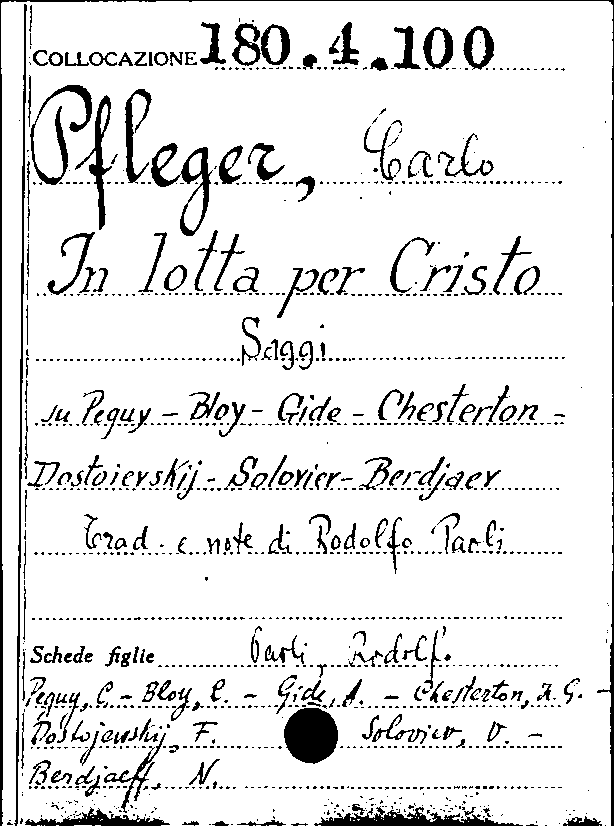 COLLOCAZIONE 180.4.100
Pfleger, Carlo
In lotta per Cristo
Saggi
su Peguy - Bloy - Gide - Chesterton -
Dostoievskij - Soloviev - Berdjaev
Trad. e note di Rodolfo Paoli
Schede figlie Paoli, Rodolf.
Peguy, C. - Bloy, L. - Gide, A. - Chesterton, K. G. -
Dostojewskij, F. Soloviev, V. -
Berdjaeff, N.